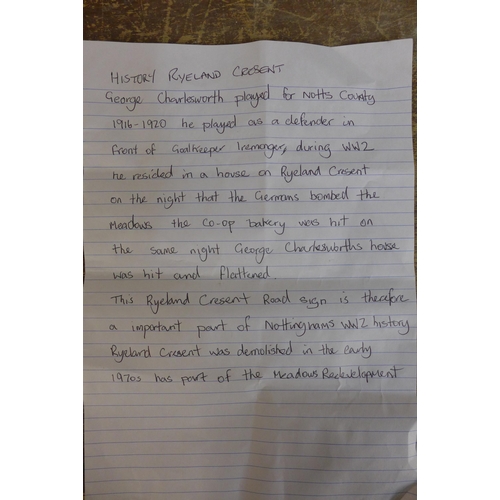 HISTORY RYELAND CRESENT
George Charlesworth played for Notts County
1916-1920 he played as a defender in
front of Goalkeeper Iremonger, during WW2
he resided in a house on Ryeland Cresent
on the night that the Germans bombed the
Meadows the Co-op bakery was hit on
the same night George Charlesworths house
was hit and flattened
This Ryeland Cresent Road sign is therefore
a important part of Nottinghams WW2 history
Ryeland Cresent was demolished in the early
1970s has part of the Meadows Redevelopment